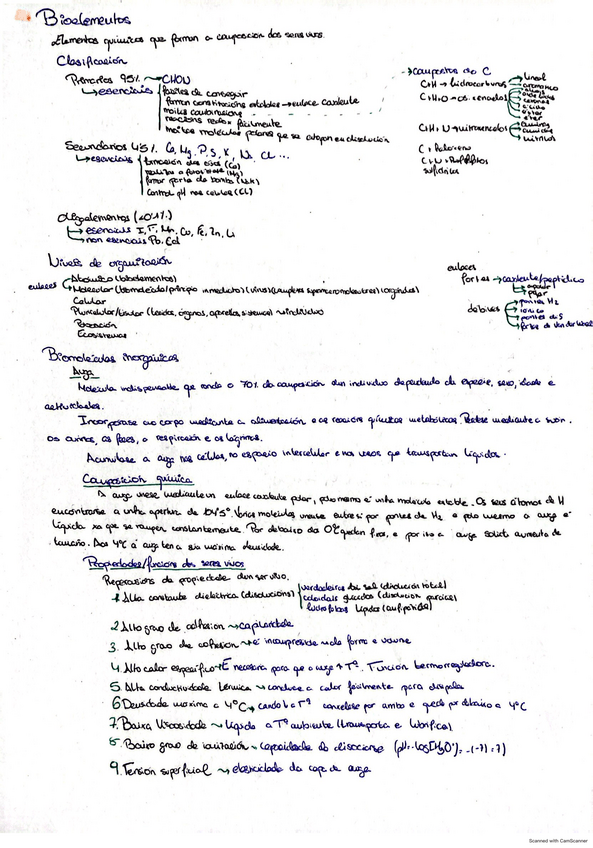 Bioelementos
Elementos químicos que forman a composición dos seres vivos.
Clasificación
Primarios 95% → CHON
→ esenciais
fáciles de conseguir
forman constitucións estables → enlace covalente
moitas combinacións
reaccións redox fácilmente
moitas moléculas polares que se atopan en disolución
→ compostos do C
C+H → hidrocarburos
lineal
aromático
C+H+O → os. cenados
alcois
aldehidos
cetonas
ácido
éster
éter
C+H+N → nitroxenados
aminas
amidas
nitrilos
C+
C+
Secundarios 4,5% Ca, Mg, P, S, K, Na, Cl ...
→ esenciais
formación dos osos (Ca)
realizar a fotosíntese (Mg)
formar parte da bomba (NaK)
control pH nas células (Cl)
Oligoelementos (<0.1%)
→ esenciais I, F, Mn, Co, Fe, Zn, Li
→ non esenciais Pb, Cd
Niveis de organización
Atómico (bioelementos)
enlaces
Molecular (biomolécula/principio inmediato) (virus) (complexos supramoleculares) (orgánulos)
Celular
Pluricelular/tisular (tecidos, órganos, aparellos, sistemas) → individuo
Poboación
Ecosistemas
enlaces
fortes → covalente/peptídico
apolar
polar
débiles
pontes H2
iónico
pontes diS
forzas de Van der Waals
Biomoléculas inorgánicas
Auga
Molécula indispensable que ronda o 70% da composición dun individuo dependendo da especie, sexo, idade e
actividades.
Incorpórase ao corpo mediante a alimentación e as reaccións químicas metabólicas. Pérdese mediante a suor.
os ouriños, as feces, a respiración e as lágrimas.
Acumúlase a auga nas células, no espacio intercelular e nos vasos que transportan líquidos.
Composición química
A auga únese mediante un enlace covalente polar, polo mesmo é unha molécula estable. Os seus átomos de H
encóntranse a unha apertura de 104'5°. Varias moléculas únense entre si por pontes de H2 e polo mesmo a auga é
líquida xa que se rompen constantemente. Por debaixo da 0ºC quedan fixos, e por iso a auga sólida aumenta de
tamaño. Aos 4ºC a auga ten a súa máxima densidade.
Propiedades/funcións dos seres vivos
Repercusións da propiedade dun ser vivo.
1. Alta constante dieléctrica (disolucións)
verdadeiras Ex: sal (disolución total)
coloidais glúcidos (disolución parcial)
hidrófobas lípidos (anfipática)
2. Alto grao de adhesion → capilaridade
3. Alto grao de cohesion → é incompresible → da forma e volume
4. Alto calor específico → É necesaria para que a auga ↑ Tº. Función termorreguladora.
5. Alta conductividade térmica → conduce a calor fácilmente para disipala
6. Densidade máxima a 4ºC → cando baixa Tº conxélase por arriba e queda por debaixo a 4ºC
7. Baixa Viscosidade → líquida a Tº ambiente (transporta e lubrifica)
8. Baixo grao de ionización → capacidade de disociarse (pH = -log[H3O+] = -(-7) = 7)
9. Tensión superficial → elasticidade da capa de auga
Scanned with CamScanner